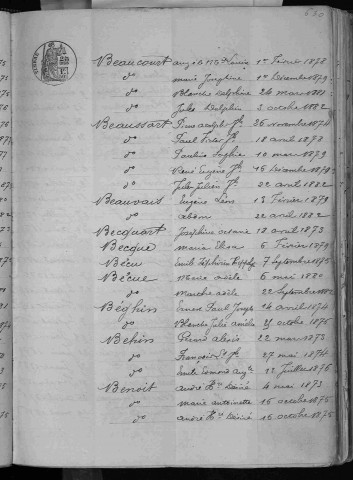 Beaucourt 1er Février 1878
do Marie Joséphine 1er Décembre 1879
do Blanche Delphine 26 mars 1881
do Jules Delphin 3 octobre 1882
Beaussart Adolph Jh 26 novembre 1874
do Paul Victor Jh 18 avril 1873
do Pauline Sophie 10 mars 1879
do René Eugène Jh 16 Décembre 1878
do Jules Julien Jh 22 avril 1882
Beauvais Eugène Léon 13 Février 1879
do 22 avril 1882
Becquart Joséphine 18 avril 1873
Becque Marie Elisa 6 Février 1879
Bécu Emile 7 Septembre 1875
Bécue Marie Adèle 6 mai 1880
do Marthe Adèle 22 Septembre 1882
Béghin Ernest Paul Joseph 24 avril 1874
do Blanche Julie Amélie 21 octobre 1876
Behin Pierre Alexis 22 mars 1873
do François Jh 27 mai 1874
do Emile Edmond Augte 12 Juillet 1876
Benoit André Désiré 4 mai 1873
do Marie Antoinette 16 octobre 1875
do André Désiré 16 octobre 1875